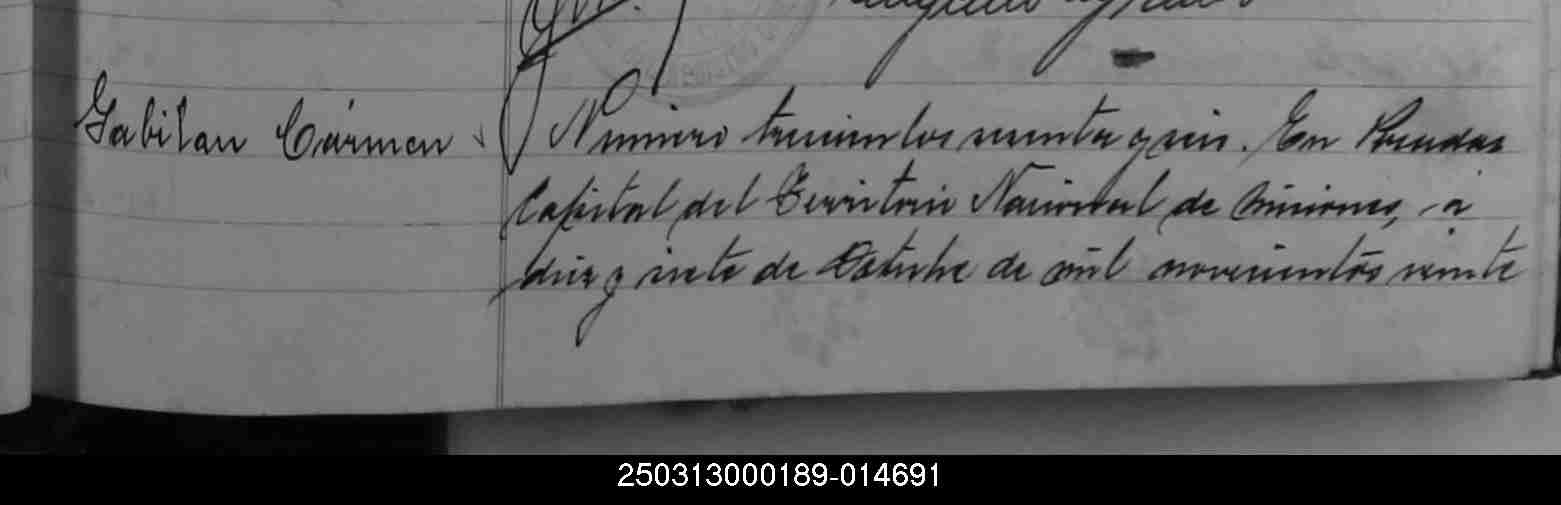 Gabilan Cármen
Número trescientos sesenta y seis. En Posadas
Capital del Territorio Nacional de Misiones, á
diez y siete de Octubre de mil novecientos veinte
250313000189-014691